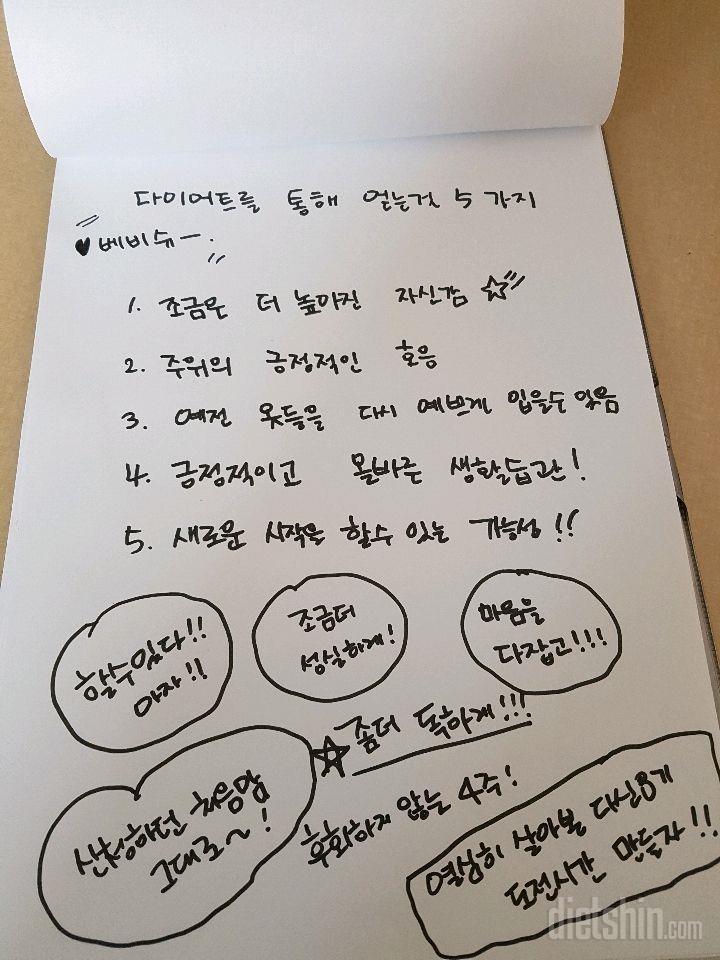 다이어트를 통해 얻는것 5가지
♥베비슈ー.
1. 조금은 더 높아진 자신감 ☆
2. 주위의 긍정적인 호응
3. 예전 옷들을 다시 예쁘게 입을수 있음
4. 긍정적이고 올바른 생활습관!
5. 새로운 시작을 할수 있는 가능성!!
할수있다!!
아자!!
조금더
성실하게!
마음을
다잡고!!!
☆좀더 독하게!!!
신청하던 처음맘
그대로~!
후회하지 않는 4주!
열심히 살아볼 다신8기
도전시간 만들자!!
dietshin.com